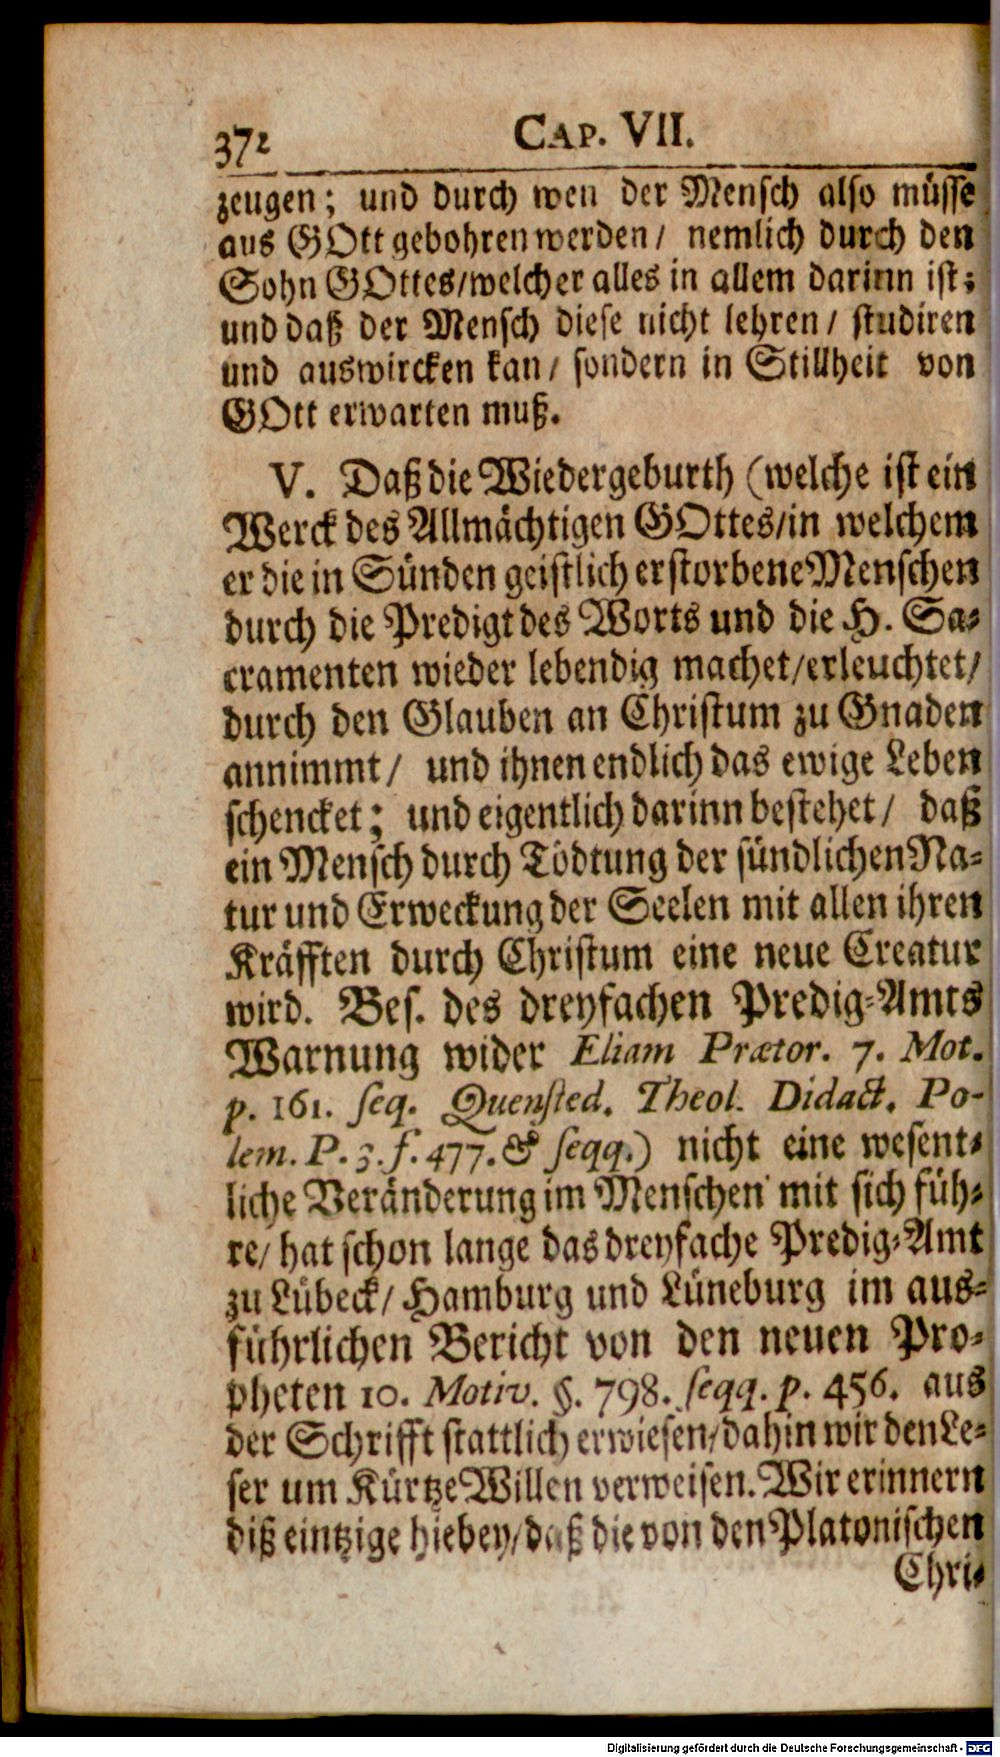 372 CAP. VII.
zeugen; und durch wen der Mensch also müsse
aus GOtt gebohren werden/ nemlich durch den
Sohn GOttes/welcher alles in allem darinn ist;
und daß der Mensch diese nicht lehren/ studiren
und auswircken kan/ sondern in Stillheit von
GOtt erwarten muß.
V. Daß die Wiedergeburth (welche ist ein
Werck des Allmächtigen GOttes/in welchem
er die in Sünden geistlich erstorbene Menschen
durch die Predigt des Worts und die H. Sa-
cramenten wieder lebendig machet/erleuchtet/
durch den Glauben an Christum zu Gnaden
annimmt/ und ihnen endlich das ewige Leben
schencket; und eigentlich darinn bestehet/ daß
ein Mensch durch Tödtung der sündlichen Na-
tur und Erweckung der Seelen mit allen ihren
Kräfften durch Christum eine neue Creatur
wird. Bes. des dreyfachen Predig-Amts
Warnung wider Eliam Prætor. 7. Mot.
p. 161. seq. Quensted. Theol. Didact. Po-
lem. P. 3. f. 477. & seqq.) nicht eine wesent-
liche Veränderung im Menschen mit sich füh-
re/ hat schon lange das dreyfache Predig-Amt
zu Lübeck/ Hamburg und Lüneburg im aus-
führlichen Bericht von den neuen Pro-
pheten 10. Motiv. §. 798. seqq. p. 456. aus
der Schrifft stattlich erwiesen/dahin wir den Le-
ser um Kürtze Willen verweisen. Wir erinnern
diß eintzige hiebey/daß die von den Platonischen
Chri-
Digitalisierung gefördert durch die Deutsche Forschungsgemeinschaft - DFG